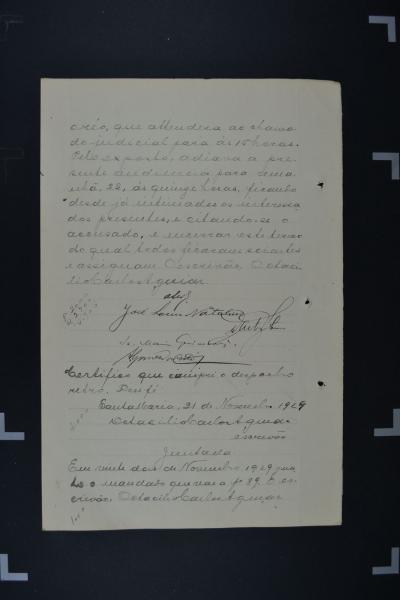 crio, que attendera ao chama
do judicial para ás 15 horas.
Pelo exposto, adiava a pre
sente audiencia para ama
nhã, 22, ás quinze horas, ficando
desde já intimados os interessa
dos presentes, e citando-se o
accusado, e encerrar este termo
do qual todos ficaram scientes
e assignam. O escrivão, Octaci
lio Carlos Aguiar
José Luiz Natalino
Certifico que cumpri o despacho
retro. Dou fé
Santa Maria, 21 de Novembro 1929
Octacilio Carlos Aguiar
escrivão
Juntada
Em vinte dois de Novembro 1929 jun
to o mandado que vae a f 89. O es
crivão, Octacilio Carlos Aguiar